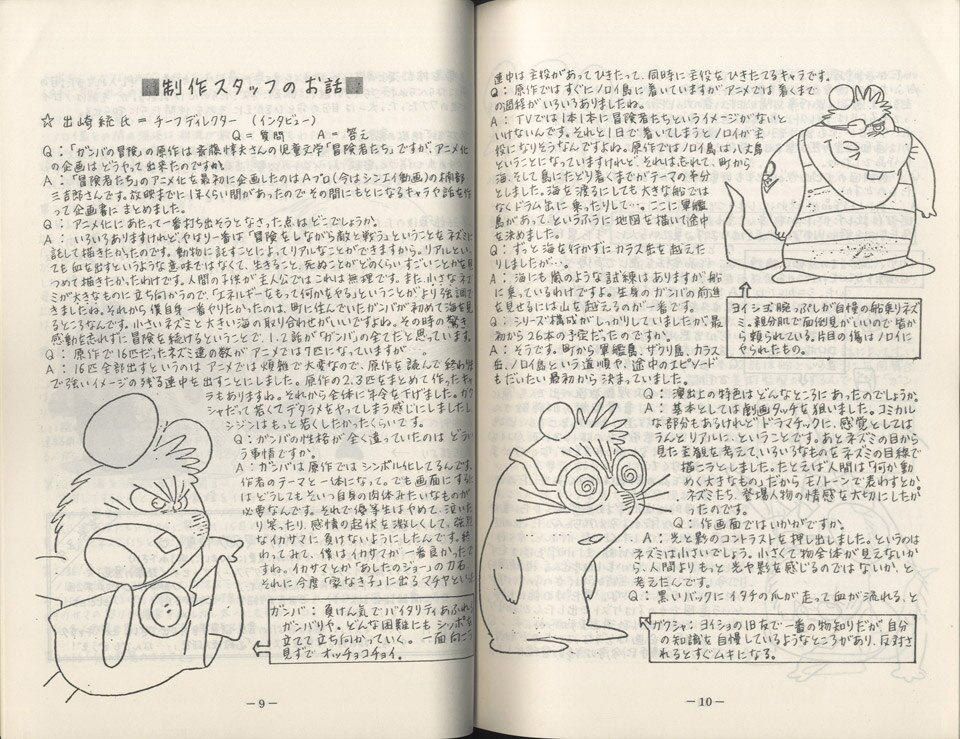 制作スタッフのお話
☆ 出崎統氏 = チーフディレクター (インタビュー)
Q = 質問 A = 答え
Q:「ガンバの冒険」の原作は斎藤惇夫さんの児童文学「冒険者たち」ですが、アニメ化
の企画はどうやって出来たのですか。
A:「冒険者たち」のアニメ化を最初に企画したのはAプロ(今はシンエイ動画)の楠部
三吉郎さんです。放映までに1年くらい間があったのでその間にもとになるキャラや話を作
って企画書にまとめました。
Q: アニメ化にあたって一番打ち出そうとなさった点はどこでしょうか。
A: いろいろありますけれど、やはり一番は「冒険をしながら敵と戦う」ということをネズミに
託して描きたかったのです。動物に託すことによってリアルなことができますから。リアルといっ
ても血を出すというような意味ではなくて、生きること、死ぬことがどのくらいすごいことかを見
つめて描きたかったわけです。人間の子供が主人公ではこれは無理です。また小さなネズ
ミが大きなものに立ち向かうので、「エネルギーをもって何かをやる」ということがより強調で
きましたね。それから僕自身一番やりたかったのは、町に住んでいたガンバが初めて海を見
るところなんです。小さいネズミと大きい海の取り合わせがいいですよね。その時の驚き
感動を忘れずに冒険を続けるということで、1.2話が「ガンバ」の全てだと思っています。
Q: 原作で16匹だったネズミ達の数がアニメでは7匹になっていますが…。
A: 16匹全部出すというのはアニメでは煩雑で大変なので、原作を読んで終わった
で強いイメージの残る連中を出すことにしました。原作の2.3匹をまとめて作ったキャ
ラもありますね。それから全体に年令を下げました。ガク
シャだって若くてデタラメをやってしまう感じにしましたし、
シジンはもっと若くしたかったくらいです。
Q: ガンバの性格が全く違っていたのはどうい
う事情ですか。
A: ガンバは原作ではシンボル化してるんです。
作者のテーマと一体になって。でも画面にするに
はどうしてもそいつ自身の肉体みたいなものが
必要なんです。それで優等生はやめて、泣いた
り笑ったり、感情の起伏を激しくして、強烈
なイカサマに負けないようにしたんです。終
わってみて、僕はイカサマが一番良かったで
すね。イカサマとか「あしたのジョー」の力石、
それに今度「家なき子」に出るマチヤといった
ガンバ: 負けん気でバイタリティあふれる
ガンバりや。どんな困難にもシッポを
立てて立ち向かっていく。一面向こう
見ずでオッチョコチョイ。
-9-
連中は主役があってひきたって、同時に主役をひきたてるキャラです。
Q: 原作ではすぐにノロイ島に着いていますがアニメでは着くまで
の過程がいろいろありましたね。
A: TVでは1本1本に冒険者たちというイメージがないと
いけないんです。それと1日で着いてしまうとノロイが主
役になりそうなんですよね。原作ではノロイ島は八丈島
ということになっていますけれど、それは忘れて、町から
海、そして島にたどり着くまでがテーマの半分
としました。海を渡るにしても大きな船では
なくドラム缶に乗ったりして…。ここに軍艦
島があって、というふうに地図を描いて途中
を決めました。
Q: ずっと海を行かずにカラス岳を越えた
りしましたが…。
A: 海にも嵐のような試練はありますが船
に乗っているわけですよ。生身のガンバの前進
を見せるには山を越えるのが一番です。
Q: シリーズ構成がしっかりしていましたが最
初から26本の予定だったのですか。
A: そうです。町から軍艦島、ザクリ島、カラス
岳、ノロイ島という道順や、途中のエピソード
もだいたい最初から決まっていました。
ヨイショ: 腕っぷしが自慢の船乗りネズ
ミ。親分肌で面倒見がいいので皆か
ら頼られている。片目の傷はノロイに
やられたもの。
Q: 演出上の特色はどんなところにあったのでしょうか。
A: 基本としては劇画タッチを狙いました。コミカル
な部分もあるけれどドラマチックに、感覚としては
うんとリアルに、ということです。あとネズミの目から
見た主観を考えて、いろいろなものをネズミの目線で
描こうとしました。たとえば人間は「何か動
めく大きなもの」だからモノトーンで表わすとか。
ネズミたち、登場人物の情感を大切にしたか
ったのです。
Q: 作画面ではいかがですか。
A: 光と影のコントラストを押し出しました。というのは
ネズミは小さいでしょう。小さくて物全体が見えないか
ら、人間よりもっと光や影を感じるのではないか、と
考えたんです。
Q: 黒いバックにイタチの爪が走って血が流れる、と
ガクシャ: ヨイショの旧友で一番の物知りだが自分
の知識を自慢しているようなところがあり、反対さ
れるとすぐムキになる。
-10-